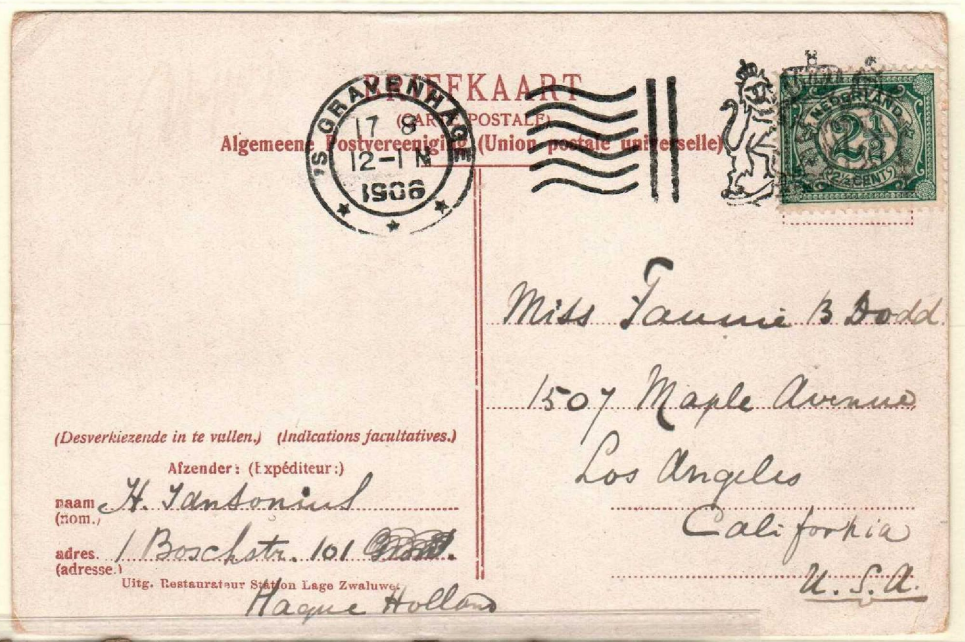 BRIEFKAART
(CARTE POSTALE)
Algemeene Postvereeniging (Union postale universelle)
'S GRAVENHAGE
17 8
12-1 N
1906
NEDERLAND
2½
(2½ CENT)
Miss Fannie B Dodd
1507 Maple Avenue
Los Angeles
California
U.S.A.
(Desverkiezende in te vullen.) (Indications facultatives.)
Afzender: (Expéditeur:)
naam H. Jansonius
(nom.)
adres. 1 Boschstr. 101
(adresse.)
Uitg. Restaurateur Station Lage Zwaluwe.
Hague Holland